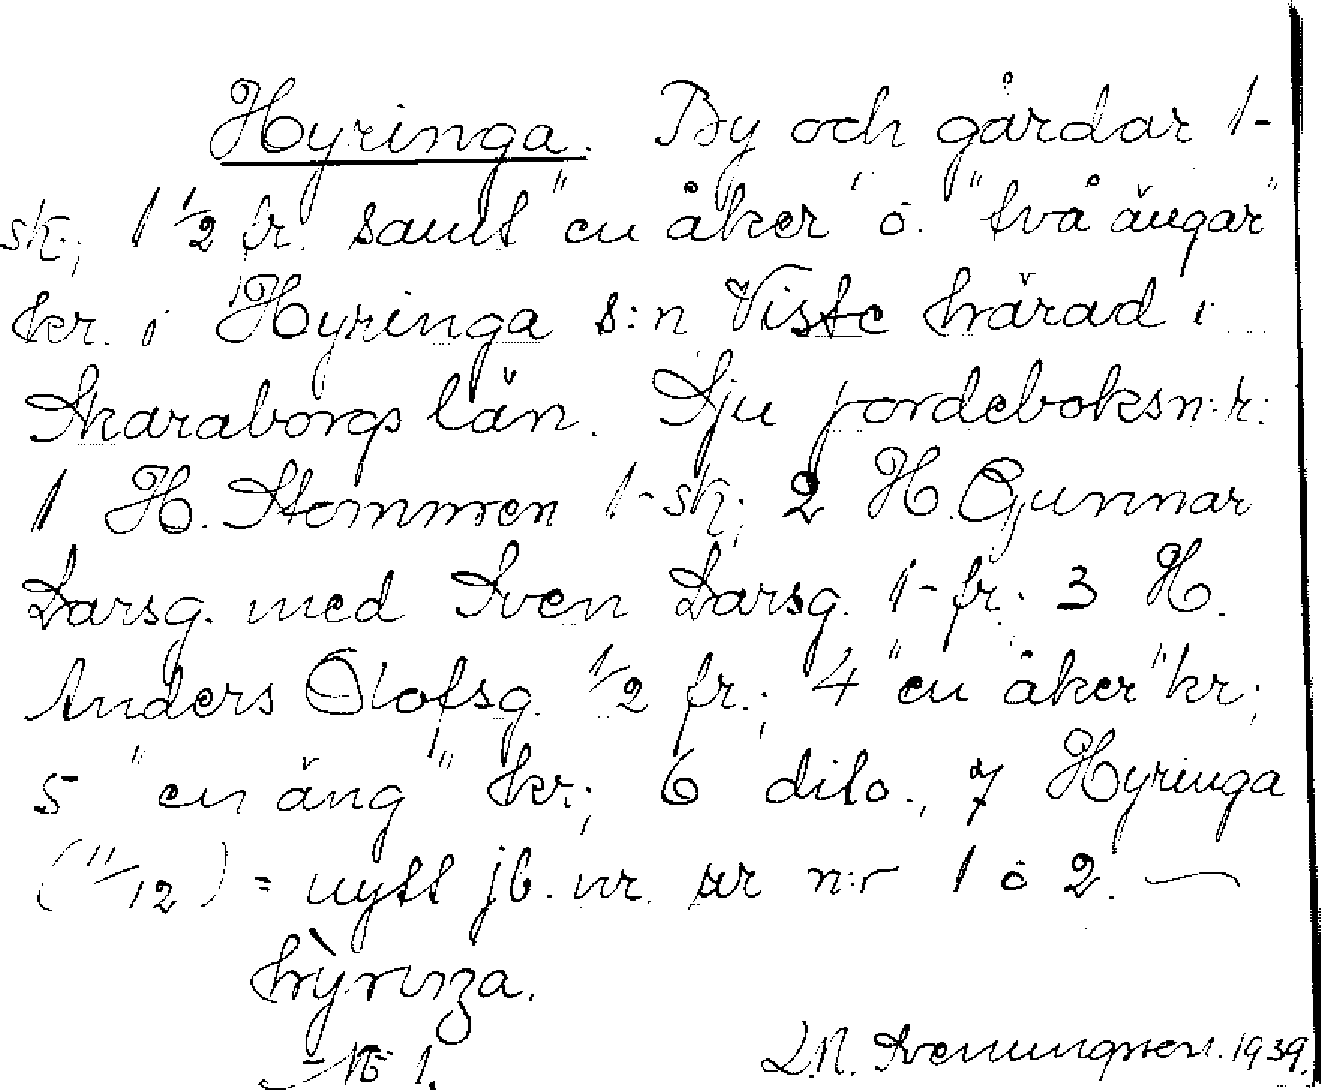 Hyringa. By och gårdar 1-
sk., 1 1/2 fr. samt "en åker" o. "två ängar"
kr. i Hyringa s:n Viste härad i
Skaraborgs län. Sju jordeboksn:r:
1 H. Stommen 1-sk; 2 H. Gunnar
Larsg. med Sven Larsg. 1-fr. 3 H.
Anders Olofsg. 1/2 fr.; 4 "en åker" kr;
5 "en äng" kr; 6 dito., 7 Hyringa
(11/12) = nytt jb. nr. ur n:r 1 o 2. —
No 1.
1939.